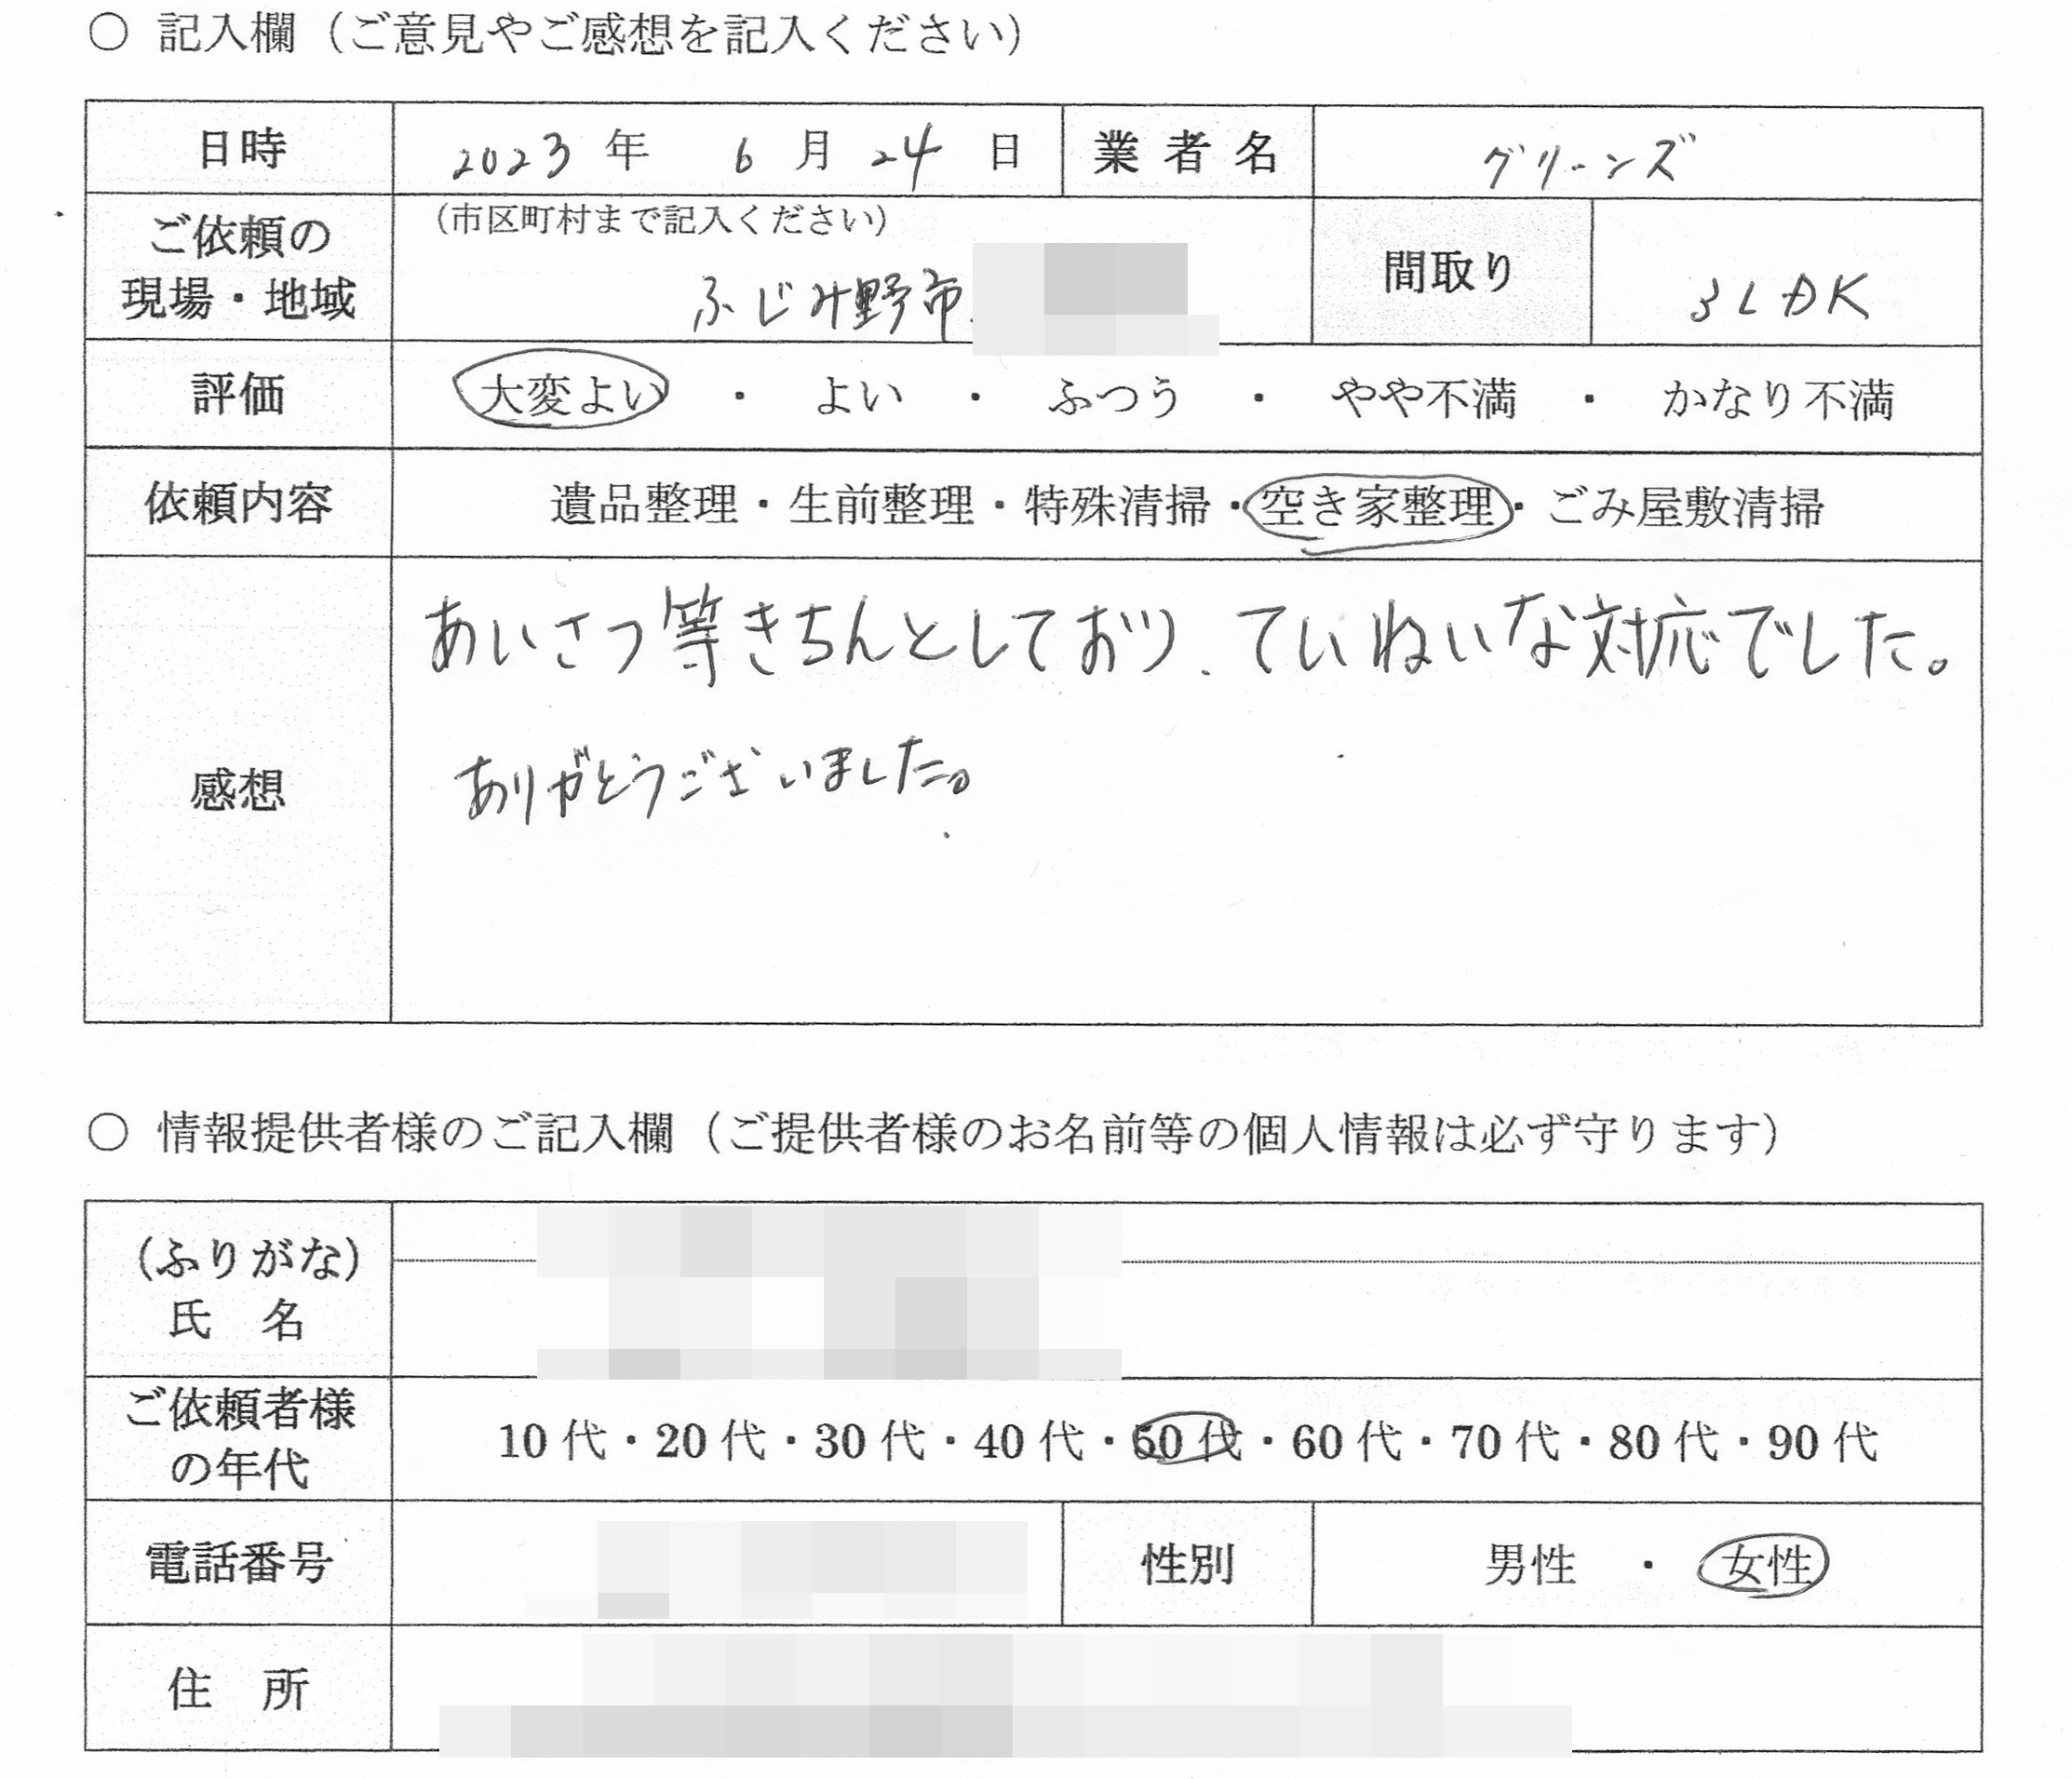 ○ 記入欄（ご意見やご感想を記入ください）
日時 2023年 6月24日 業者名 グリーンズ
ご依頼の現場・地域 （市区町村まで記入ください） ふじみ野市 間取り 3LDK
評価 大変よい ・ よい ・ ふつう ・ やや不満 ・ かなり不満
依頼内容 遺品整理・生前整理・特殊清掃・空き家整理・ごみ屋敷清掃
感想
あいさつ等きちんとしており、ていねいな対応でした。
ありがとうございました。
○ 情報提供者様のご記入欄（ご提供者様のお名前等の個人情報は必ず守ります）
（ふりがな）
氏 名
ご依頼者様の年代 10代・20代・30代・40代・50代・60代・70代・80代・90代
電話番号 性別 男性 ・ 女性
住 所